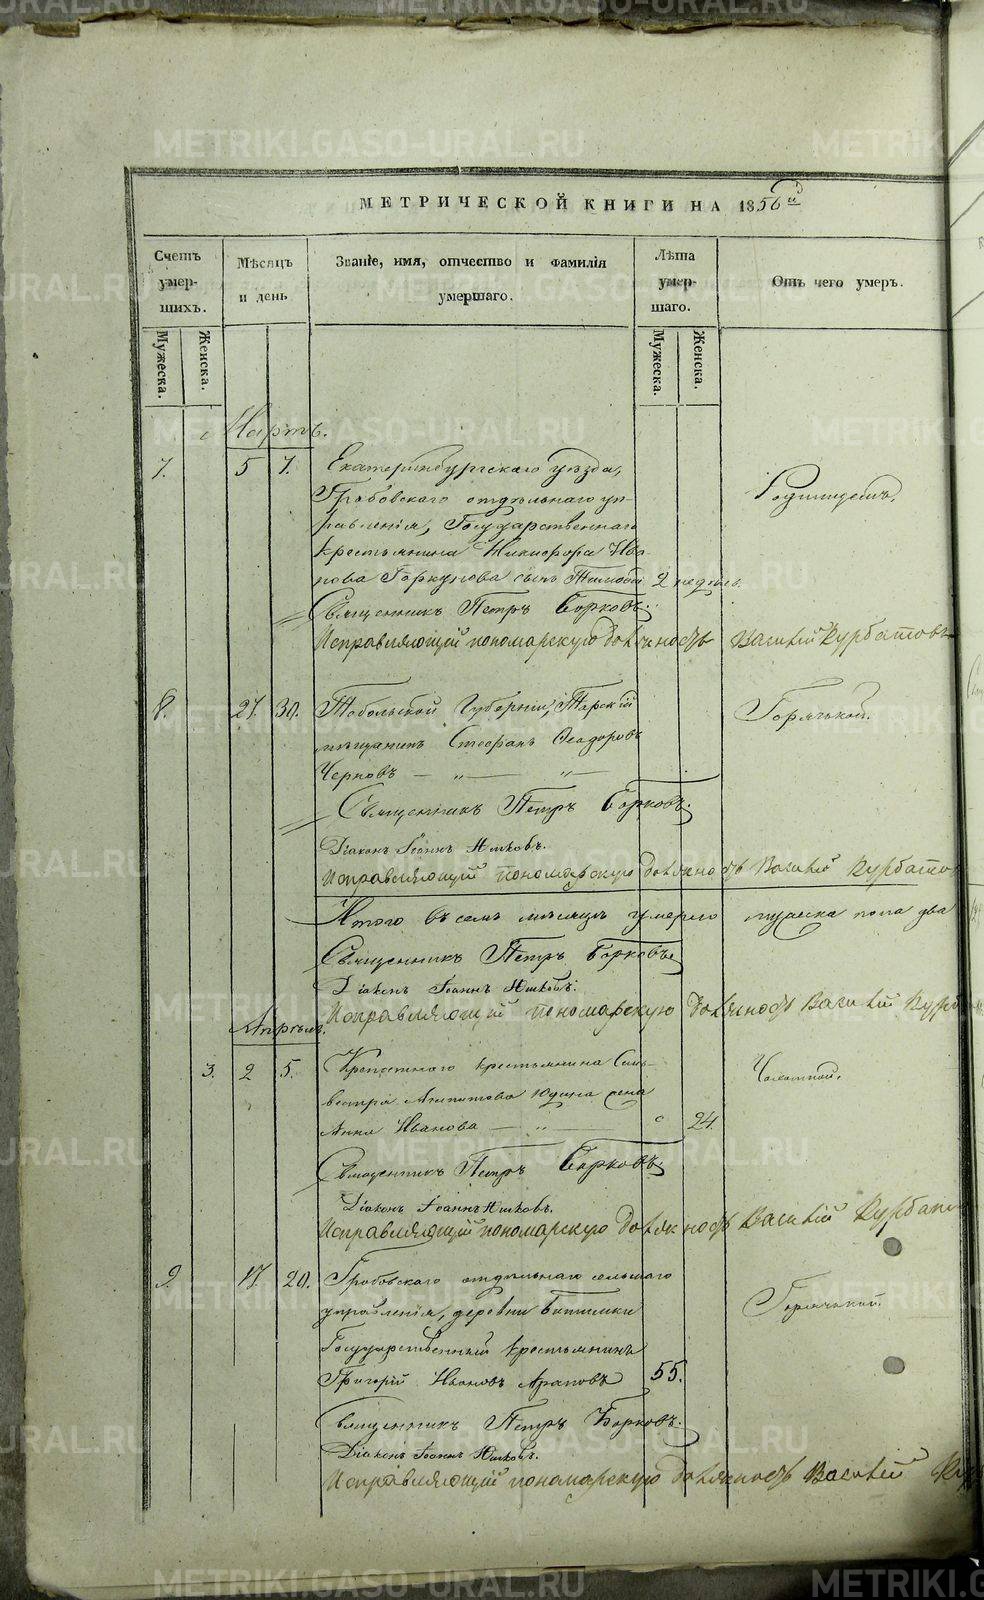 МЕТРИЧЕСКОЙ КНИГИ НА 1856й
Счетъ умер-шихъ.
Мѣсяцъ и день
Званіе, имя, отчество и фамилія умершаго.
Лѣта умер-шаго.
Отъ чего умеръ.
Мужеска.
Женска.
Мужеска.
Женска.
Мартъ.
7. 5 7. Екатеринбургскаго уѣзда,
Грабовскаго отдѣльнаго уп-
равленія, Государственнаго
крестьянина Никифора Ива-
нова Горкунова сынъ Тимофей 2 недѣль. Родимцемъ.
Священникъ Петръ Борковъ.
Исправляющій пономарскую должность Василій Курбатовъ
8. 27. 30. Тобольской Губерніи, Тарскій Горячькой.
мѣщанинъ Стефанъ Ѳеодоровъ
Черновъ — „ — „ —
Священникъ Петръ Борковъ.
Діаконъ Іоаннъ
Исправляющій пономарскую должность Василій Курбатов
Итого въ семъ мѣсяцѣ умерло мужеска пола два
Священникъ Петръ Борковъ
Діаконъ Іоаннъ
Исправляющій пономарскую должность Василій Курб
Апрѣль.
3. 2 5. Крепостного крестьянина Силь- Чахоткой.
вестра Юдина жена
Анна Иванова — „ — 24.
Священникъ Петръ Борковъ
Діаконъ Іоаннъ
Исправляющій пономарскую должность Василій Курбато
9 17. 20. Гробовскаго отдѣльнаго сельскаго
управленія, деревни Горячькой.
Государственный крестьянинъ
Григорій Ивановъ Араповъ 55.
Священникъ Петръ Борковъ.
Діаконъ Іоаннъ
Исправляющій пономарскую должность Василій Кур
METRIKI.GASO-URAL.RU